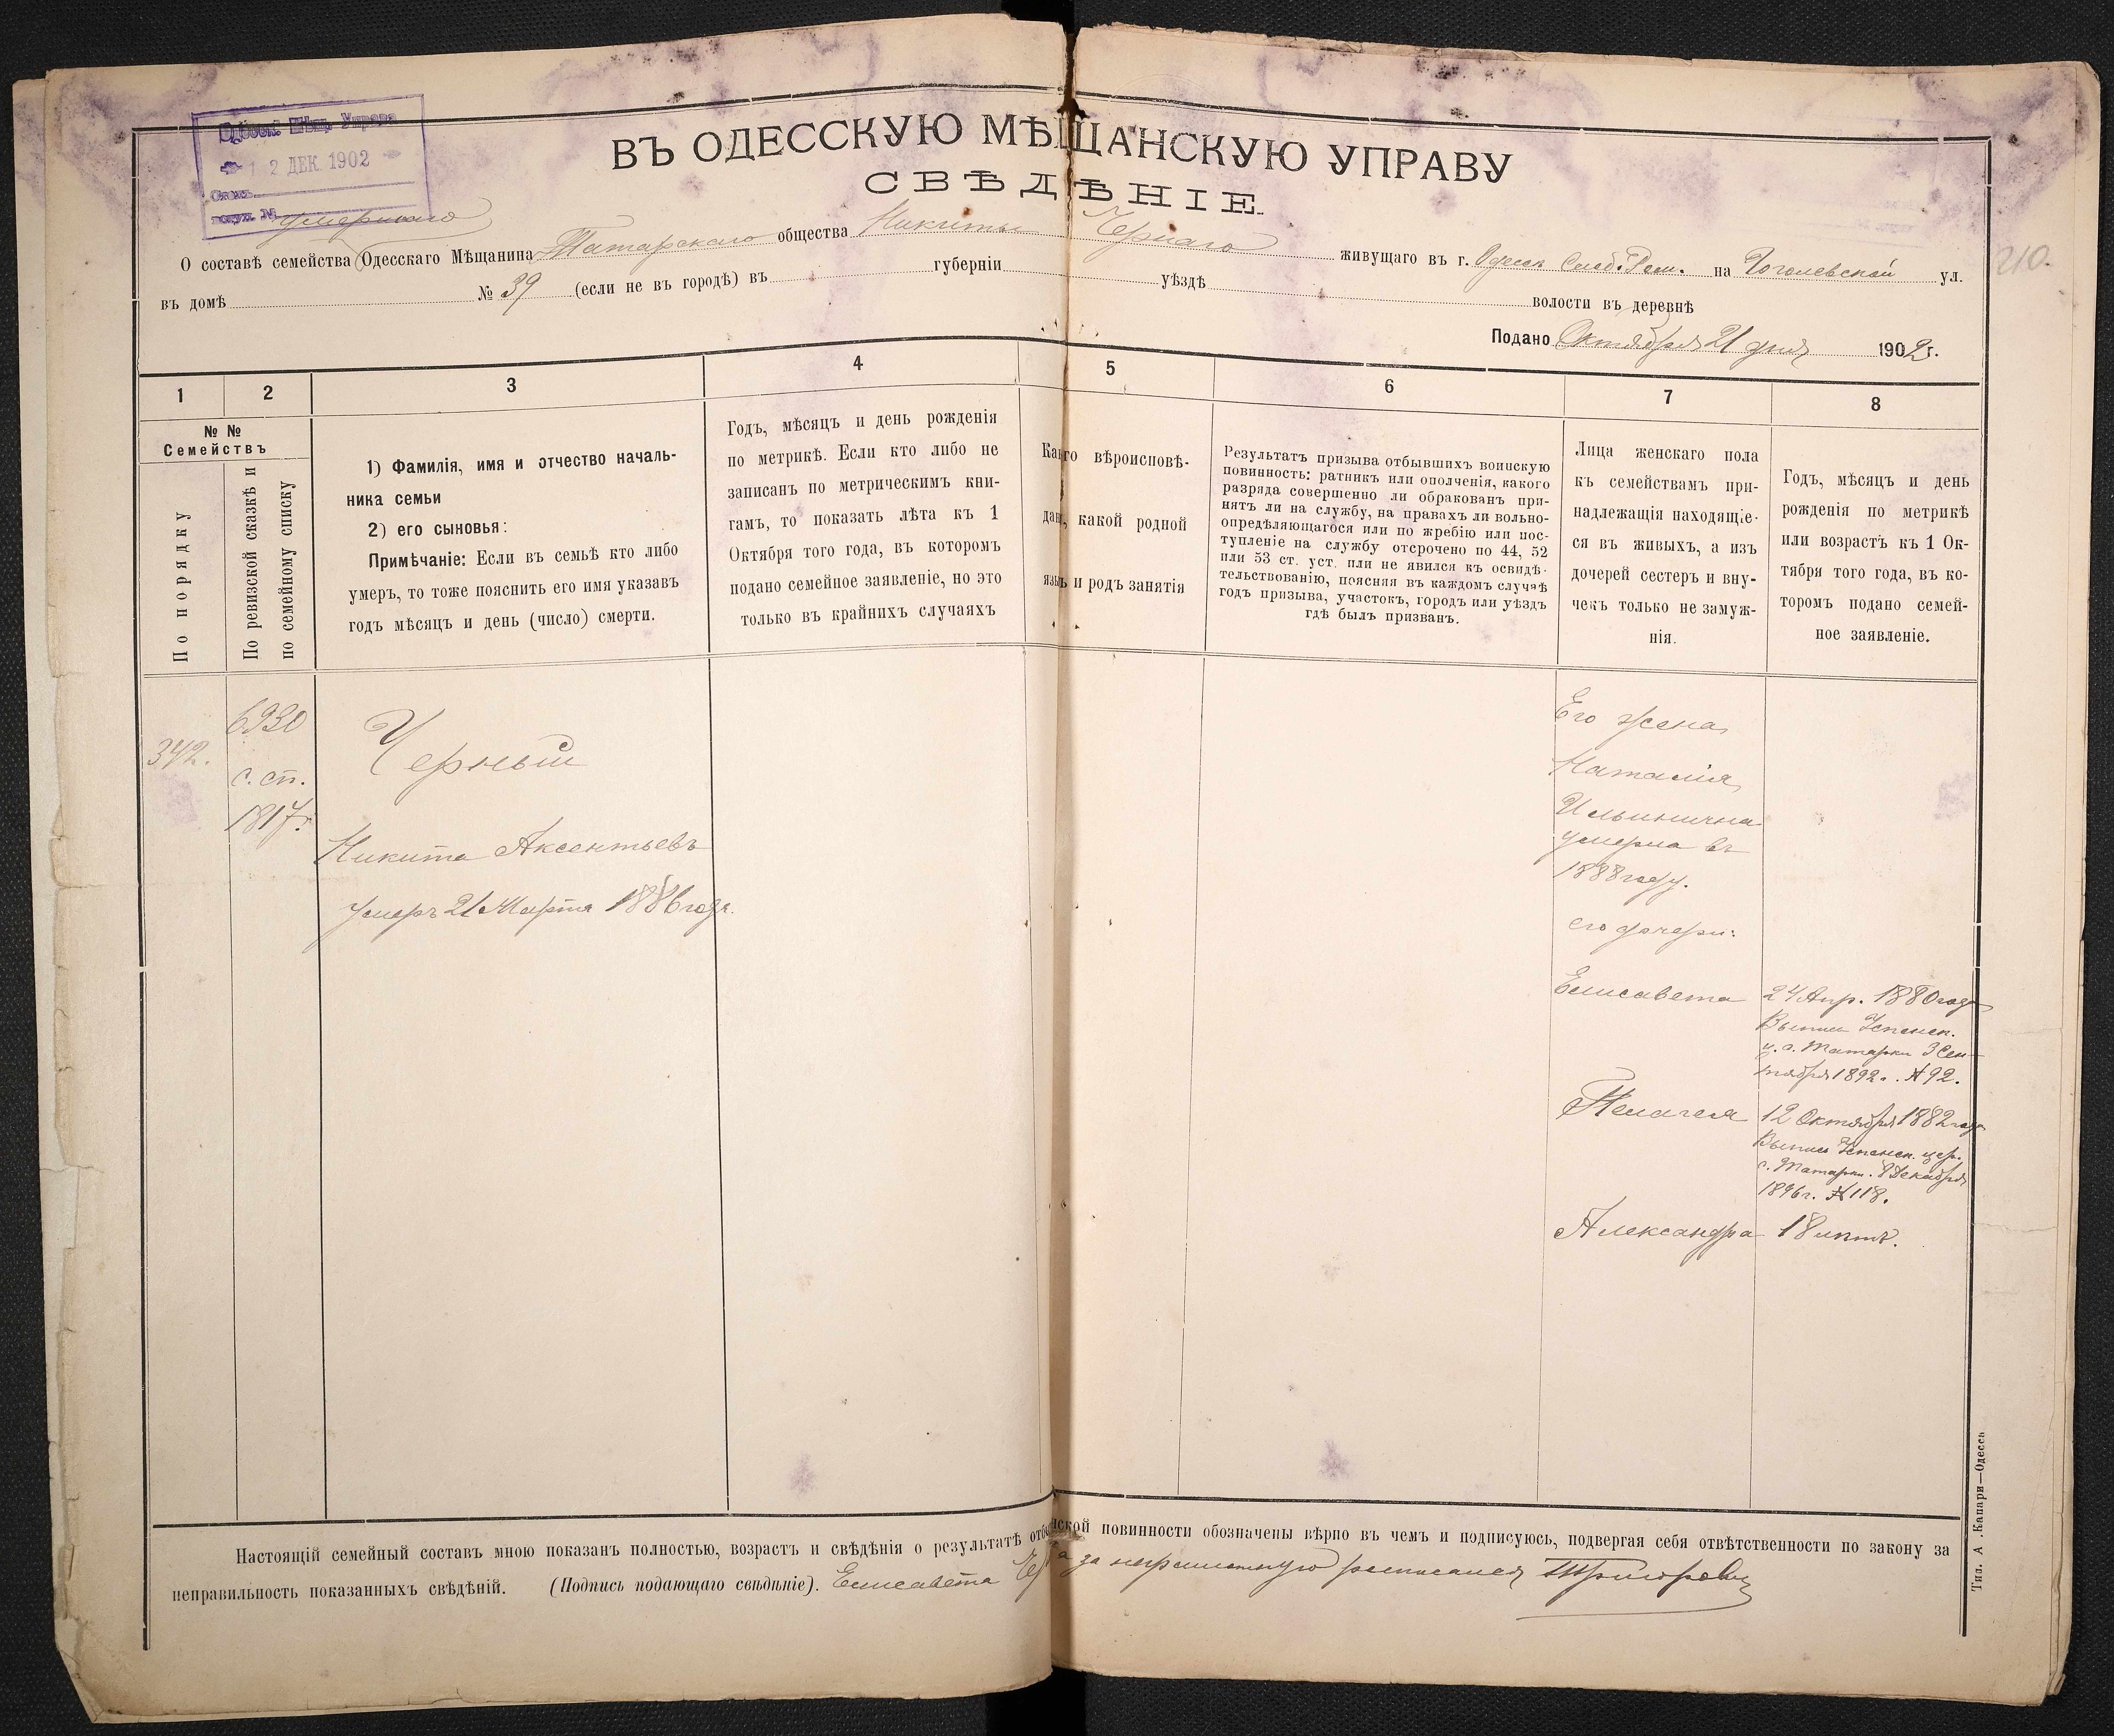 Одесск. Мѣщ. Управа
1 2 ДЕК. 1902
ВЪ ОДЕССКУЮ МѢЩАНСКУЮ УПРАВУ
СВѢДѢНІЕ.
умершаго
О составѣ семейства Одесскаго Мѣщанина Татарскаго общества Никиты Чернаго живущаго въ г. Одессѣ Слоб. Ром. на Гоголевской ул.
210.
въ домѣ № 39 (если не въ городѣ) въ губерніи уѣздѣ волости въ деревнѣ
Подано Октября 21 дня 1902 г.
1 2 3 4 5 6 7 8
№ №
Семействъ
По порядку
По ревизской сказкѣ и
по семейному списку
1) Фамилія, имя и отчество началь-
ника семьи
2) его сыновья:
Примѣчаніе: Если въ семьѣ кто либо
умеръ, то тоже пояснить его имя указавъ
годъ мѣсяцъ и день (число) смерти.
Годъ, мѣсяцъ и день рожденія
по метрикѣ. Если кто либо не
записанъ по метрическимъ кни-
гамъ, то показать лѣта къ 1
Октября того года, въ которомъ
подано семейное заявленіе, но это
только въ крайнихъ случаяхъ
Какого вѣроисповѣ-
данія, какой родной
языкъ и родъ занятія
Результатъ призыва отбывшихъ воинскую
повинность: ратникъ или ополченія, какого
разряда совершенно ли обракованъ при-
нятъ ли на службу, на правахъ ли вольно-
опредѣляющагося или по жребію или пос-
тупленіе на службу отсрочено по 44, 52
или 53 ст. уст. или не явился къ освидѣ-
тельствованію, поясняя въ каждомъ случаѣ
годъ призыва, участокъ, городъ или уѣздъ
гдѣ былъ призванъ.
Лица женскаго пола
къ семействамъ при-
надлежащія находящіе-
ся въ живыхъ, а изъ
дочерей сестеръ и вну-
чекъ только не замуж-
нія.
Годъ, мѣсяцъ и день
рожденія по метрикѣ
или возрастъ къ 1 Ок-
тября того года, въ ко-
торомъ подано семей-
ное заявленіе.
342.
6930
с. сп.
1817 г.
Черный
Никита Аксентьевъ
умеръ 21 Марта 1886 года.
Его жена
Наталія
Ильинична
умерла въ
1888 году.
его дочери:
Елисавета 24 Апр. 1880 года
Выпись Успенск.
ц. с. Татарки 3 Сен-
тября 1892 г. № 92.
Пелагея 12 Октября 1882 года
Выпись Успенск. цер.
с. Татарки. 8 Декабря
1896 г. № 118.
Александра 18 лѣтъ.
Настоящій семейный составъ мною показанъ полностью, возрастъ и свѣдѣнія о результатѣ отбы нской повинности обозначены вѣрно въ чемъ и подписуюсь, подвергая себя отвѣтственности по закону за
неправильность показанныхъ свѣдѣній. (Подпись подающаго свѣдѣніе). Елисавета Чер а за неграмотную росписался
Тип. А. Капари—Одесса